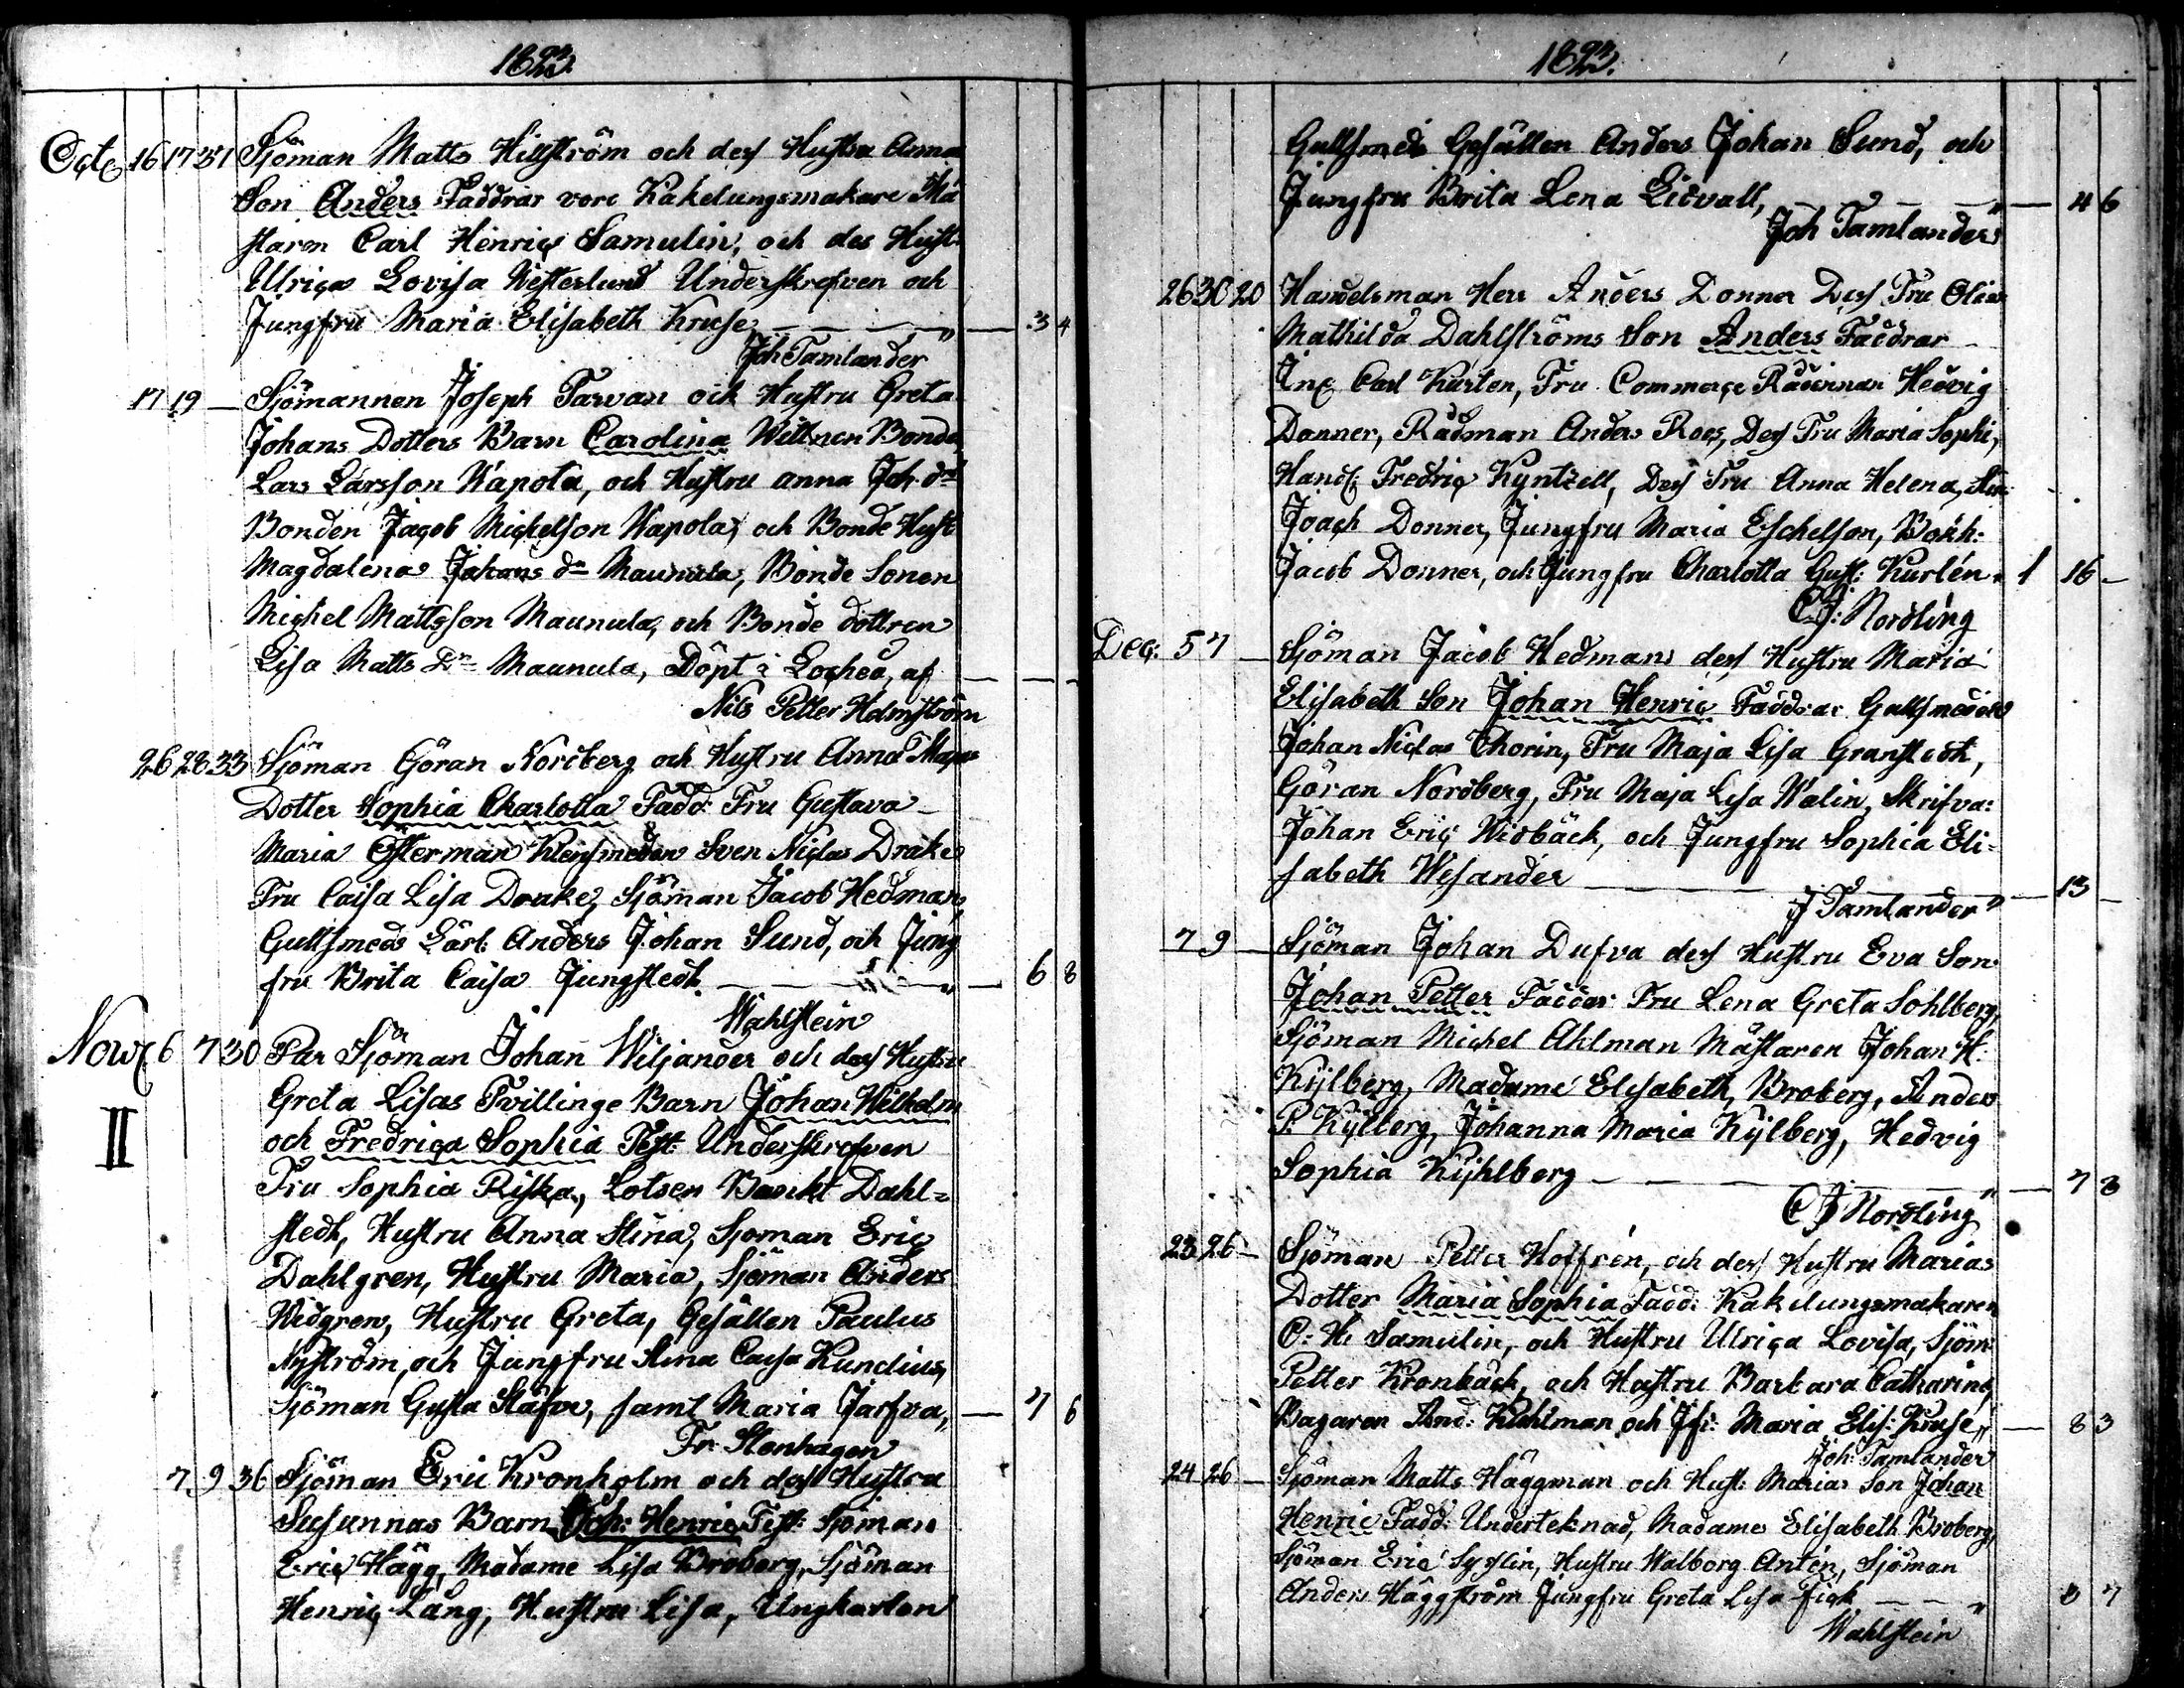 1823.
Octo 16 17 31 Sjöman Matts Hillström och dess Hustru Anna
Son Anders Faddrar vore Kakelungsmakare Mä
staren Carl Henric Samulin, och des Hust:
Ulrica Lovisa Westerlund Underskrefven och
Jungfru Maria Elisabeth Kruse — — — " — 3 4
Joh Tamlander
17 19 — Sjömannen Joseph Tarvan och Hustru Greta
Johans Dotters Barn Carolina Wittnen Bonde
Lars Larsson Wapola, och Hustru anna Joh. dr
Bonden Jacob Michelson Wapola, och Bonde Hust
Magdalena Johans dr Maunula, Bonde Sonen
Michel Mattsson Maunula, och Bonde dottren
Lisa Matts Dr Maunula, Döpt i Locheå, af — —
Nils Petter Holmström
26 28 33 Sjöman Göran Nordberg och Hustru Anna Majas
Dotter Sophia Charlotta Fadd: Fru Gustava
Maria Österman Kleinsmeden Sven Niclas Drake
Fru Caisa Lisa Drake, Sjöman Jacob Hedman,
Gullsmeds Lärl: Anders Johan Sund, och Jung
fru Brita Caisa Jungstedt. — — — " — 6 8
Wahlstein
Nov 6 7 30 Par Sjöman Johan Wiljander och dess Hustru
Greta Lisas Tvillinge Barn Johan Wilhelm
II och Fredrica Sophia Test: Underskrefven
Fru Sophia Riska, Lotsen Banckt Dahl=
stedt, Hustru Anna Stina, Sjoman Eric
Dahlgren, Hustru Maria, Sjöman Anders
Widgren, Hustru Greta, Gesällen Paulus
Nyström, och Jungfru Anna Caisa Kundius,
Sjöman Gusta Stafve, samt Maria Jarfva, — 7 6
Fr: Stenhagen
7 9 36 Sjöman Eric Kronholm och dess Hustru
Susannas Barn Joh: Henric Test: Sjöman
Eric Hägg, Madame Lisa Broberg, Sjöman
Henric Lång, Hustru Lisa, Ungkarlen
1823.
Gullsmeds Gesällen Anders Johan Sund, och
Jungfru Brita Lena Lidvall, — — " — 4 6
Joh Tamlander
26 30 20 Handelsman Herr Anders Donner Dess Fru Olivia
Mathilda Dahlströms Son Anders Faddrar
Inc Carl Kurten, Fru Commerce Rådinnan Hedvig
Donner, Rådman Anders Roos, Dess Fru Maria Sophi,
Hand: Fredric Kyntzell, Dess Fru Anna Helena,
Joach Donner, Jungfru Maria Eschelson, Bokh:
Jacob Donner, och Jungfru Charlotta Gust: Kurtén. 1 16 —
C J: Nordling
Dec: 5 7 — Sjöman Jacob Hedmans dess Hustru Maria
Elisabeth Son Johan Henric Faddrar Gullsmeden
Johan Niclas Thorin, Fru Maja Lisa Granstedt,
Göran Nordberg, Fru Maja Lisa Walin, Skrifva:
Johan Eric Widbäck, och Jungfru Sophia Eli=
sabeth Wesander — — — " — 13 —
J Tamlander
7 9 — Sjöman Johan Dufva dess Hustru Eva Son
Johan Petter Faddar Fru Lena Greta Sohlberg,
Sjöman Michel Ahlman Mästaren Johan H:
Kijlberg, Madame Elisabeth Broberg, Anders
P. Kijlberg, Johanna Maria Kijlberg, Hedvig
Sophia Kijhlberg — — — " — 7 8
C J Nordling
23 26 — Sjöman Petter Hoffrén, och dess Hustru Marias
Dotter Maria Sophia Fadd: Kakelungsmakaren
C: H: Samulin, och Hustru Ulrica Lovisa, Sjöm:
Petter Kronback, och Hustru Barbara Catharina,
Bagaren And: Kuhlman och Jfr: Maria Elis: Kruse " — 8 3
Joh: Tamlander
24 26 — Sjöman Matts Häggman och Hust: Marias Son Johan
Henric Fadd: Underteknad, Madame Elisabeth Broberg,
Sjöman Eric Sysslin, Hustru Walborg Antin, Sjöman
Anders Häggström Jungfru Greta Lisa Fick — — " 3 7
Wahlstein